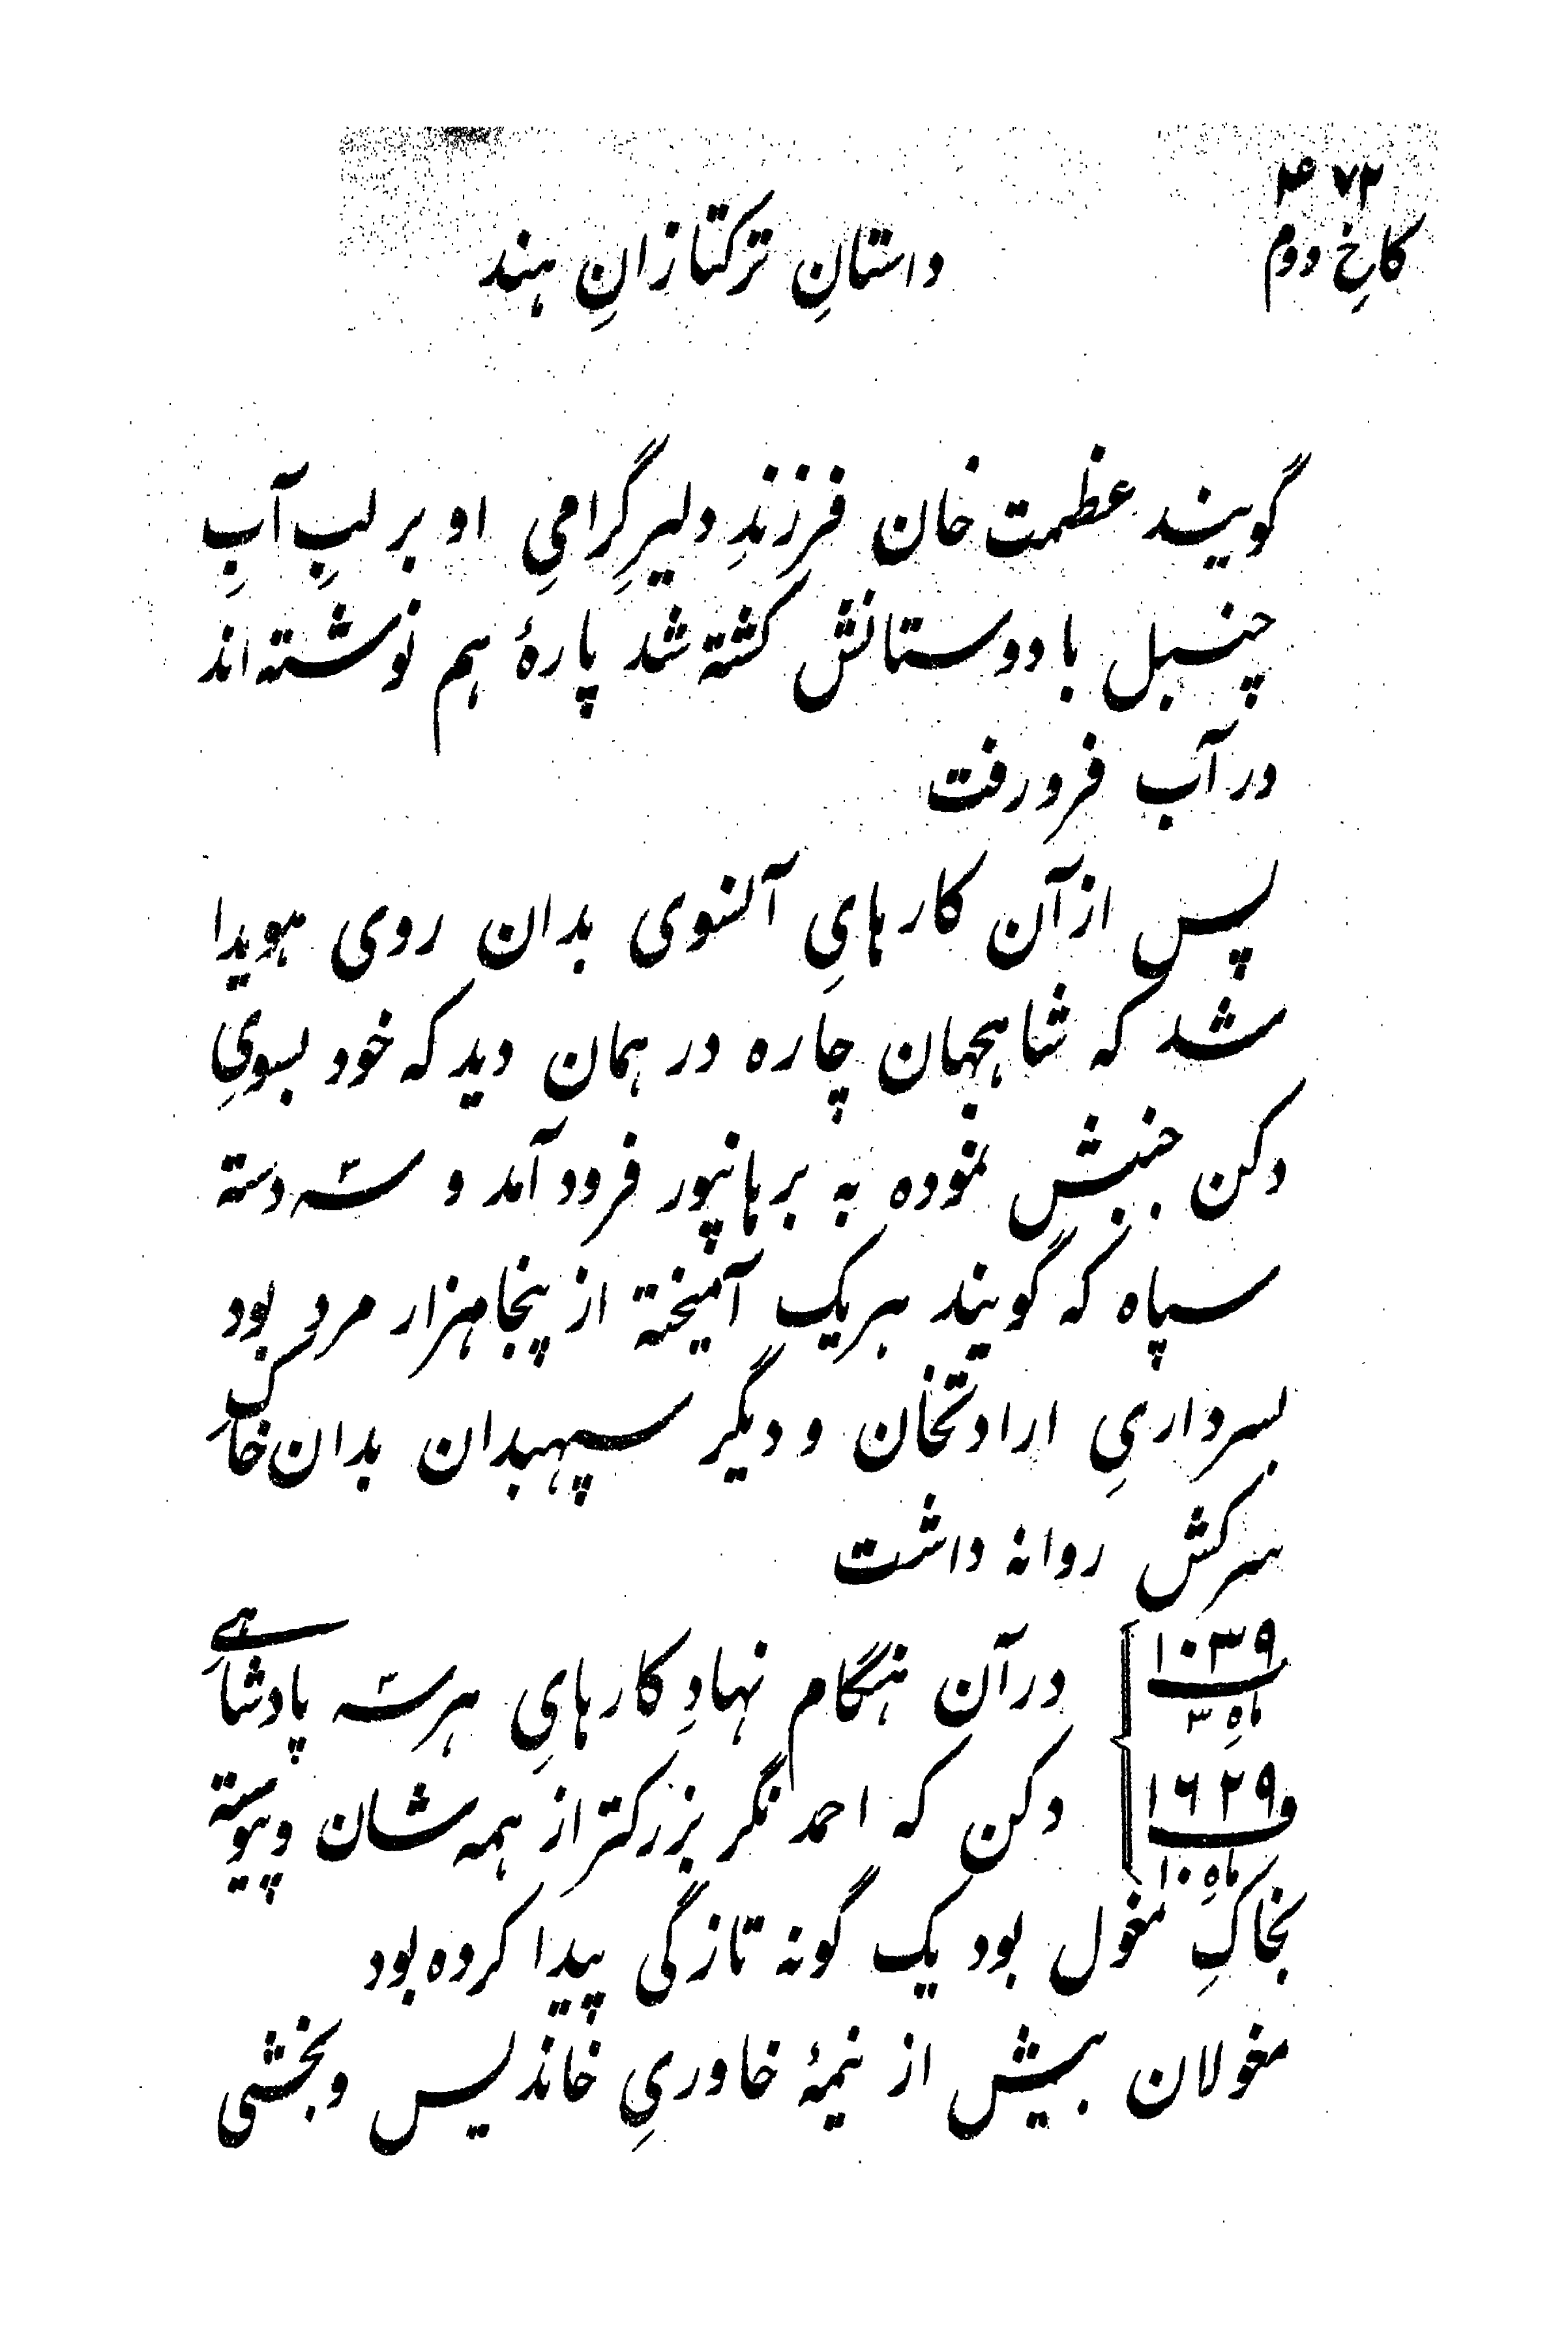 ۴۷۲
کاخِ دوم
داستانِ ترکتازانِ هند
گویند عظمت خان فرزندِ دلیرِ گرامیِ او بر لبِ آبِ
چنبل با دوستانش کشته شد پارهٔ هم نوشته اند
در آب فرو رفت
پس از آن کارهایِ آلنوی بدان روی هویدا
شد که شاهجهان چاره در همان دید که خود بسویِ
دکن جنبش نموده به برهانپور فرود آمد و سه دسته
سپاه که گویند هر یک آمیخته از پنجاهزار مرد بود
بسرداریِ ارادتخان و دیگر سپهبدان بدان خاکِ
سرکش روانه داشت
۱۰۳۹ در آن هنگام نهادِ کارهایِ هر سه پادشاهیِ
ماهِ ۳
۱۶۲۹ دکن که احمد نگر بزرکتر از همه شان و پیوسته
ماهِ ۱۰
بخاکِ مغول بود یک گونه تازگی پیدا کرده بود
مغولان بیش از نیمهٔ خاوریِ خاندیس و بخشی